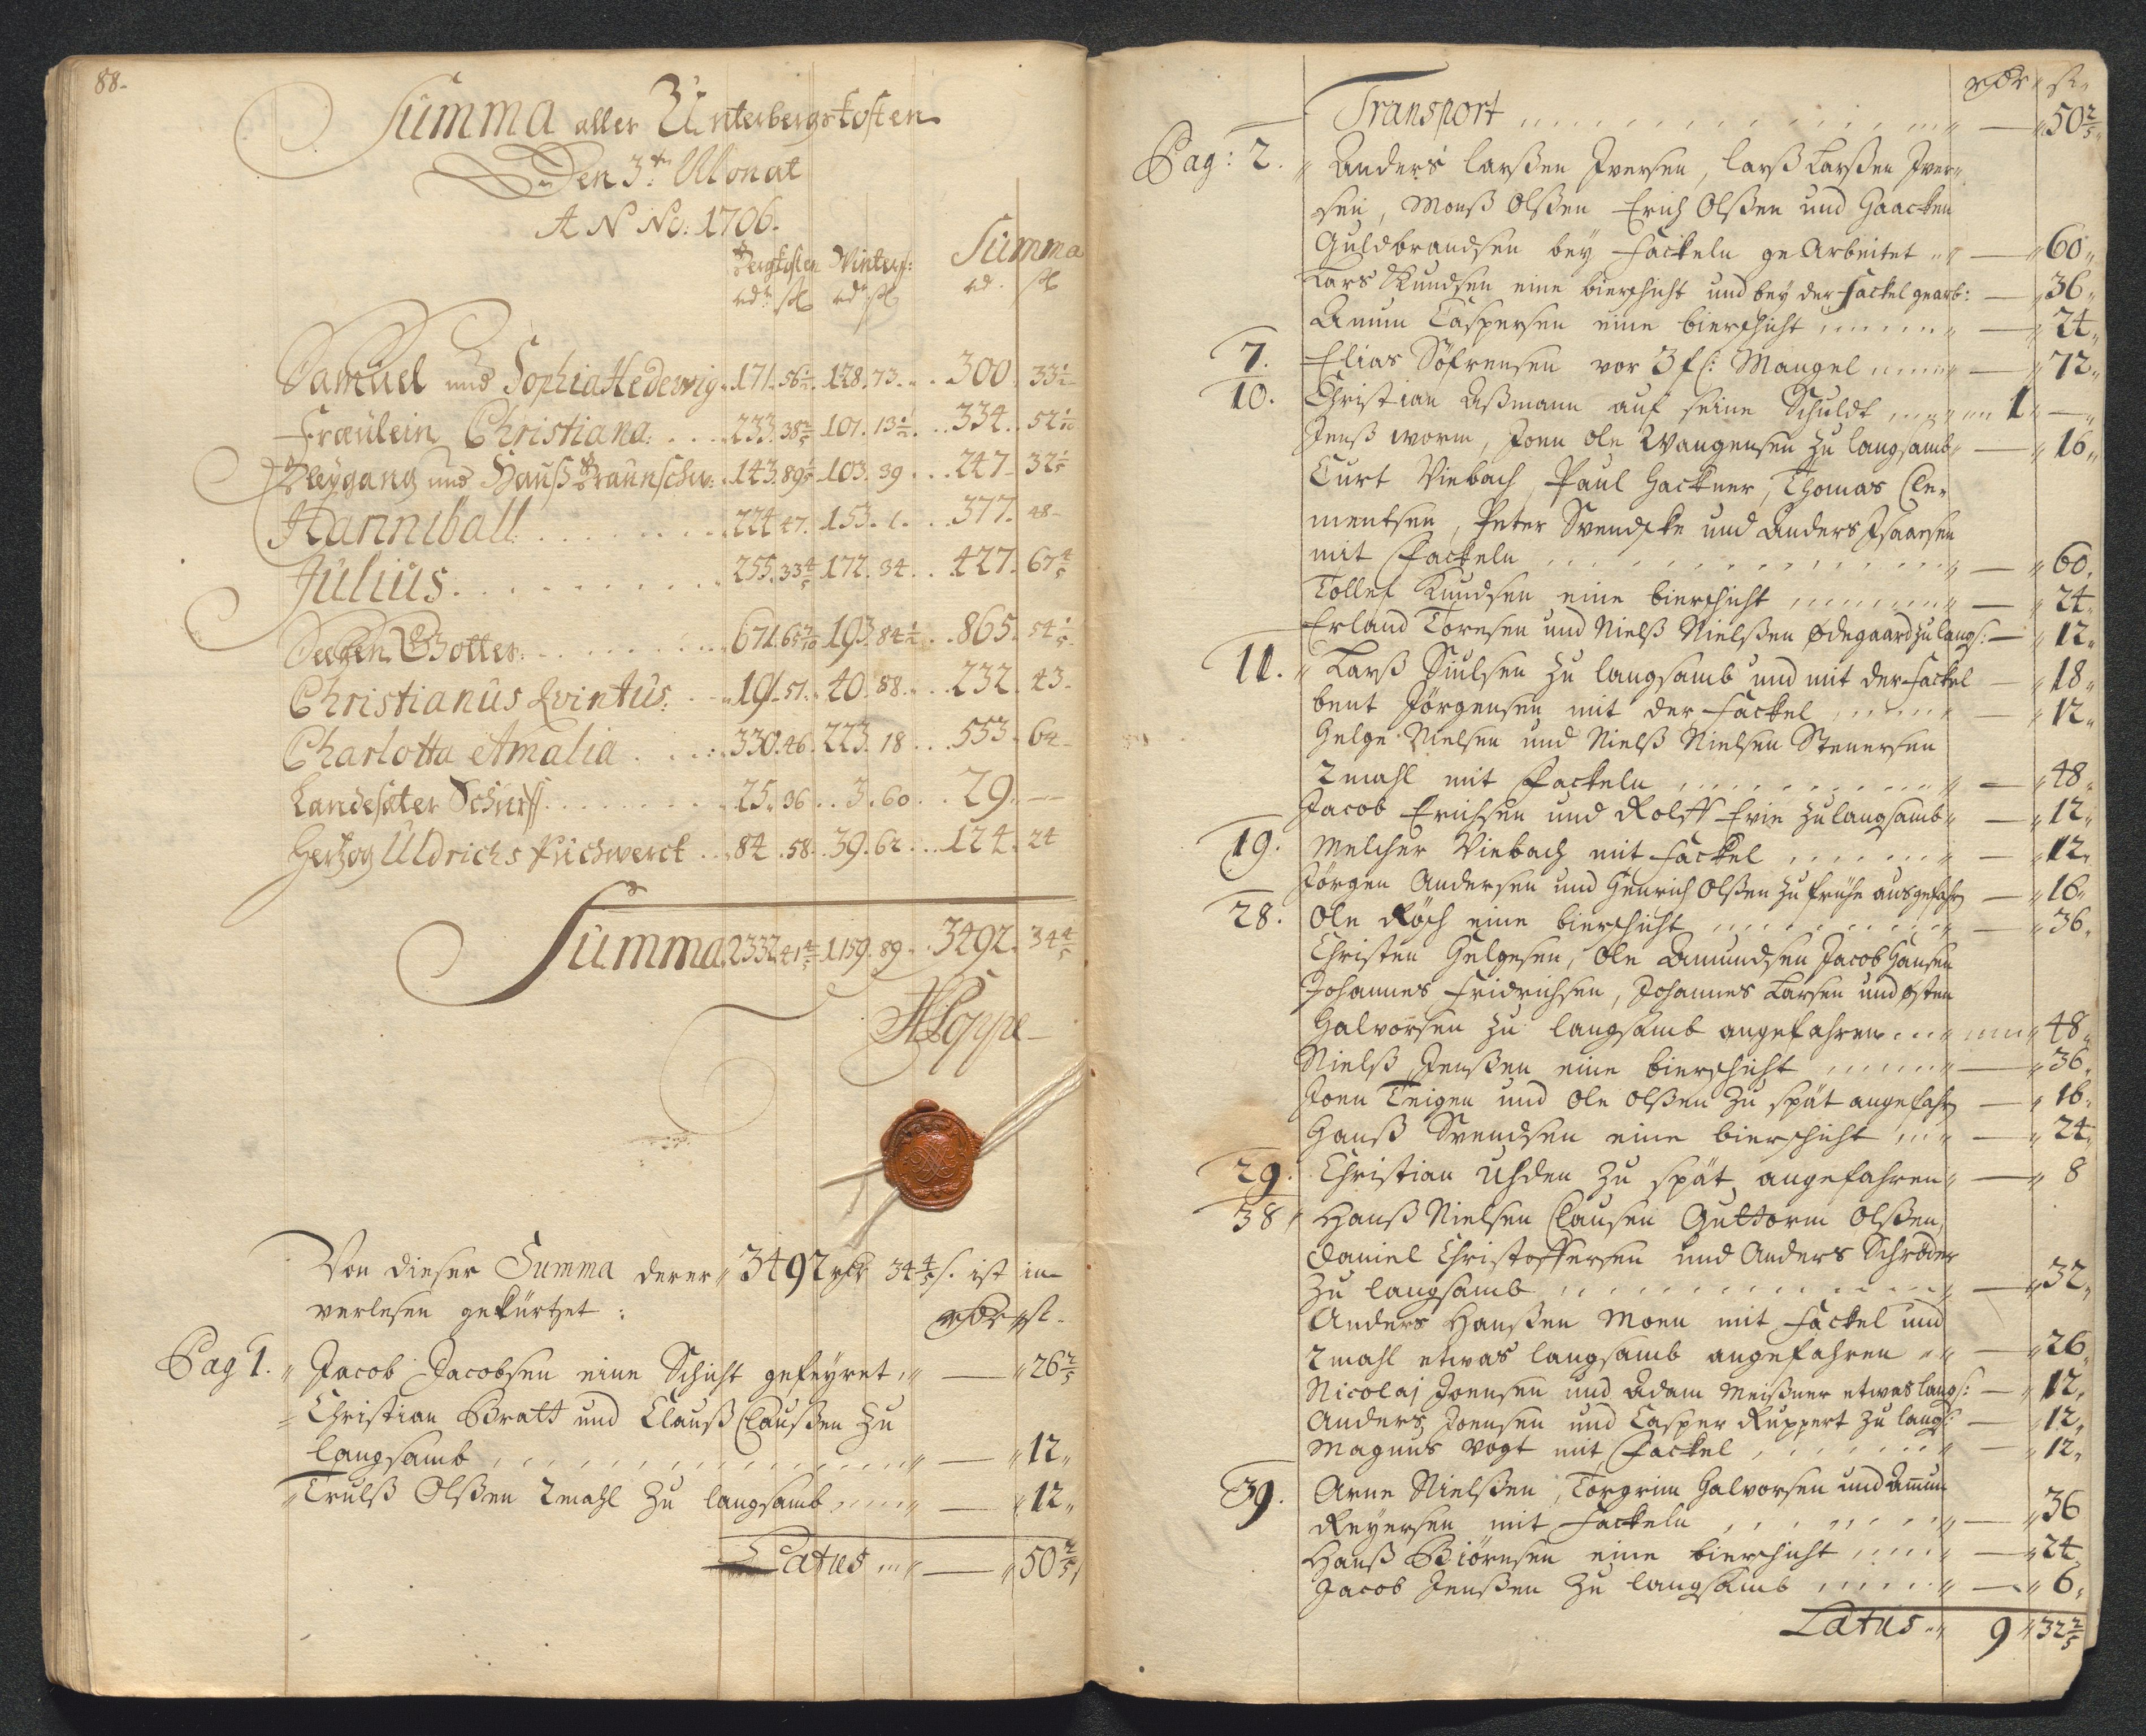 88.
Summa aller Unterbergskosten
Den 3.ten Monat
ANNo: 1706.
Bergkosten Winters: Summa
rd. ß rd ß rd. ß
Samuel und Sophia Hedewig. 171. 56½. 128. 73. . . 300. 33½
Fræulein Christiana. . . . 233. 38 3/5. 101. 13½. . . 334. 52 1/10
Bleygang und Hauß Braunschw: . 143. 89 1/5. 103. 39 . . . 247. 32 1/5
Hanniball. . . . 224. 47. 153. 1. . . 377. 48.
Julius. . . . 255. 33 4/5. 172. 34. . . 427. 67 4/5
Seegen Gottes. . . . 671. 65 7/10. 193. 84½. . . 865. 54 1/5
Christianus Qvintus. . . 191. 51. 40. 88. . . 232. 43.
Charlotta Amalia . . . 330. 46. 223. 18 . . . 553. 64.
Landesæter Schurff. . . . 25. 36 . . 3. 60 . . 29. —
Hertzog Uldrichs Puchwerck . . 84. 58. 39. 62 . . . 124. 24
Summa. 2332. 41 4/5. 1159. 89. . 3492. 34 4/5
HPoppe
Von dieser Summa derer 3492 rdlr 34 4/5 ß. ist im
verlesen gekürtzet:
rdr ß.
Pag 1. Jacob Jacobsen eine Schicht gefeyret — 26 2/5
Christian Bratt und Clauß Claußen zu
langsamb — 12
Trulß Olßen 2mahl zu langsamb — 12
Latus — 50 2/5
rdr ß.
Transport — 50 2/5
Pag: 2. Anders Larßen Iversen, Larß Larßen Iver-
sen, Monß Olßen Erich Olßen und Haacken
Guldbrandsen bey Fackeln ge Arbeitet — 60
Lars Knudsen eine bierschicht und bey der Fackel gearb: — 36
Amun Caspersen eine bierschicht — 24
7. Elias Söfrensen vor 3 ß: Mangel — 72
10. Christian Aßmann auf seine Schuldt 1 —
Jenß Worm, Joen Ole Wangensen zu langsamb — 16
Curt Viebach, Paul Hackner, Thomas Cle-
mentsen, Peter Svendske und Anders Isaacsen
mit Fackeln — 60
Tollef Knudsen eine bierschicht — 24
Erland Toresen und Nielß Nielßen Ødegaard zu langs: — 12
11. Larß Siulsen zu langsamb und mit der Fackel — 18
bent Jörgensen mit der Fackel — 12
Helge Nielsen und Nielß Nielsen Stenersen
2mahl mit Fackeln — 48
Jacob Erichsen und Roloff Evie zu langsamb — 12
19. Melcher Viebach mit Fackel — 12
Jörgen Andersen und Henrich Olßen zu frühe ausgefahr — 16
28. Ole Röch eine bierschicht — 36
Christen Helgesen, Ole Amundsen Jacob Hansen
Johannes Fridrichsen, Johannes Larsen und Østen
Halvorsen zu langsamb angefahren — 48
Nielß Jenßen eine bierschicht — 36
Joen Teigen und Ole Olßen zu spät angefahr — 16
Hanß Svendsen eine bierschicht — 24
29. Christian Uhden zu spät angefahren — 8
38 Hanß Nielsen Clausen Guttorm Olßen,
Daniel Christoffersen und Anders Schröder
zu langsamb — 32
Anders Hanßen Moen mit Fackel und
2mahl etwas langsamb angefahren — 26
Nicolaj Joensen und Adam Meißner etwas langs: — 12
Anders Joensen und Casper Ruppert zu langs: — 12
Magnus Vogt mit Fackel — 12
39. Arne Nielßen, Torgrim Halvorsen und Amun
Reyersen mit Fackeln — 36
Hanß Biörnsen eine bierschicht — 24
Jacob Jenßen zu langsamb — 6
Latus 9 32 2/5